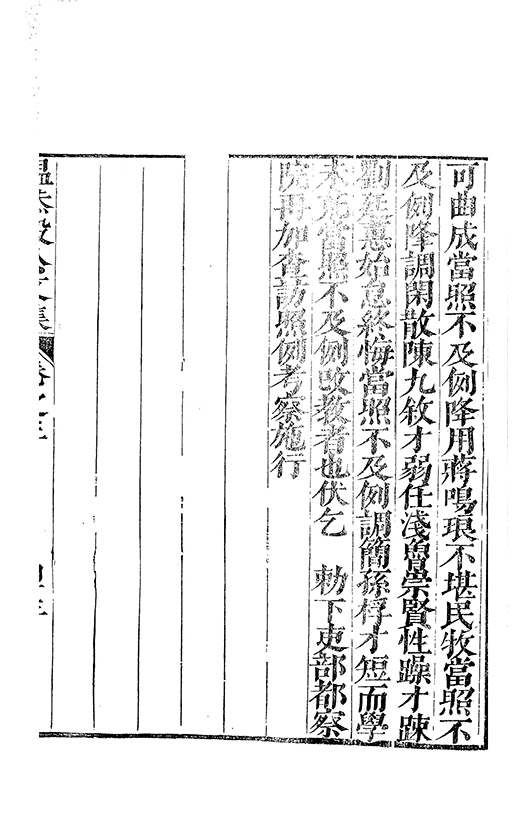 可曲成當照不及例降用蔣鳴琅不堪民牧當照不
及例降調閑散陳九敘才弱任淺魯崇賢性躁才踈
劉廷蕙始怠終悔當照不及例調簡孫桴才短而學
未充當照不及例改教者也伏乞　勅下吏部都察
院再加查訪照例考察施行
温恭毅公文集
卷之三